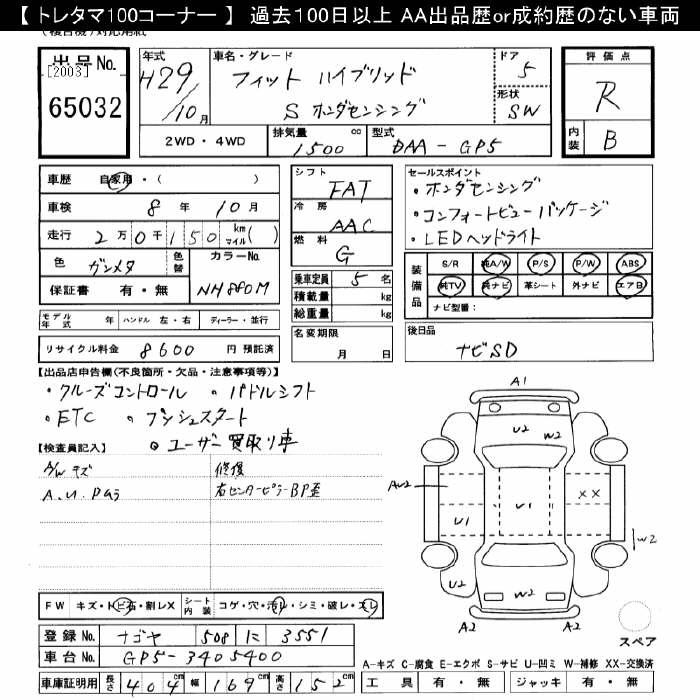 【 トレタマ100コーナー 】 過去100日以上 AA出品歴or成約歴のない車両
出品No.
[2003]
65032
年式
H29/10月
車名・グレード
フィット ハイブリッド
S ホンダセンシング
ドア
5
形状
SW
評価点
R
内装
B
2WD・4WD
排気量
1500 cc
型式
DAA-GP5
車歴 自家用・( )
車検 8年 10月
走行 2万0千150 km マイル( )
色 ガンメタ
色替
カラーNo.
NH880M
保証書 有・無
モデル年式 年 ハンドル 左・右 ディーラー・並行
リサイクル料金 8600 円 預託済
シフト
FAT
冷房
AAC
燃料
G
乗車定員 5名
積載量 kg
総重量 kg
名変期限
月 日
セールスポイント
・ホンダセンシング
・コンフォートビューパッケージ
・LEDヘッドライト
装備品
S/R 純A/W P/S P/W ABS
純TV 純ナビ 革シート 外ナビ エアB
ナビ型番:
後日品
ナビSD
【出品店申告欄(不良箇所・欠品・注意事項等)】
・クルーズコントロール ・パドルシフト
・ETC ・プッシュスタート
・ユーザー買取り車
【検査員記入】
A/Wキズ
A.U.Pムラ
修復
右センターピラーBP歪
A1
U2
W2
AU2
U1
U1
XX
W2
U2
W2
A2
A2
スペア
FW キズ・トビ石・割レX
シート内装 コゲ・穴・汚レ・シミ・破レ・スレ
登録No. ナゴヤ 508 に 3551
車台No. GP5-3405400
車庫証明用 長さ 404cm 幅 169cm 高さ 152cm
A-キズ C-腐食 E-エクボ S-サビ U-凹ミ W-補修 XX-交換済
工具 有・無 ジャッキ 有・無